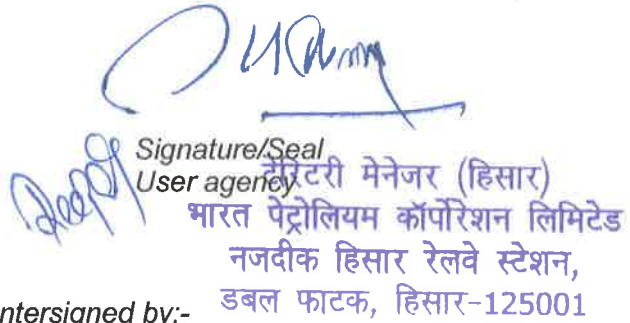 Signature/Seal
User agency
टेरिटरी मेनेजर (हिसार)
भारत पेट्रोलियम कॉर्पोरेशन लिमिटेड
नजदीक हिसार रेलवे स्टेशन,
डबल फाटक, हिसार-125001
ntersigned by:-